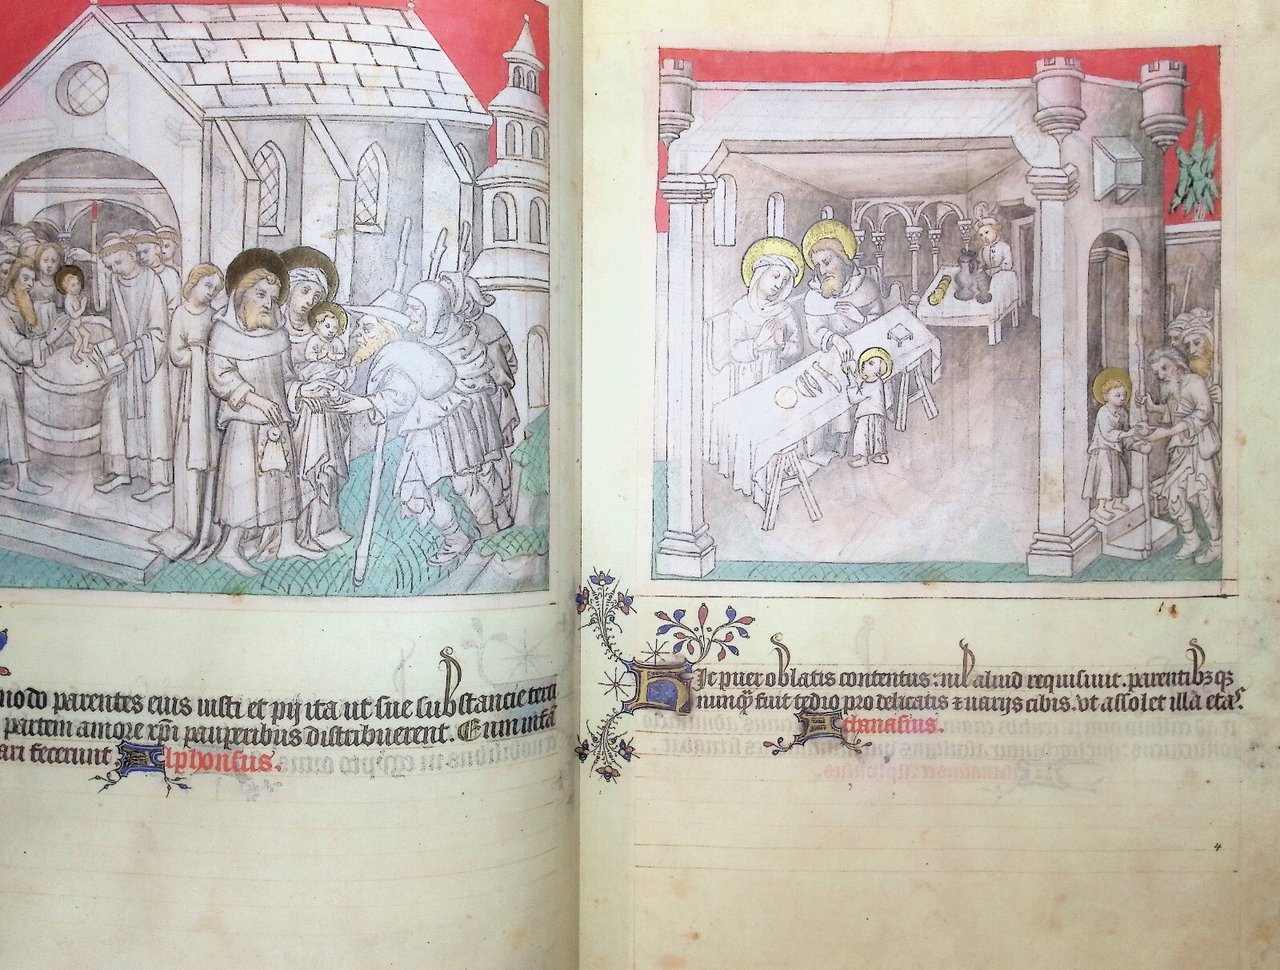 modo parentes eius iusti et pij ita ut sue substancie terci
partem amore xpi pauperibus distribuerent. Eum infā
ari fecerunt Alphonsus.
Hic puer oblatis contentus: nil aliud requisivit. parentibzqȝ
nunqȝ fuit tedio pro delicatis ⁊ uarijs cibis. ut assolet illa etas.
Athanasius.
4